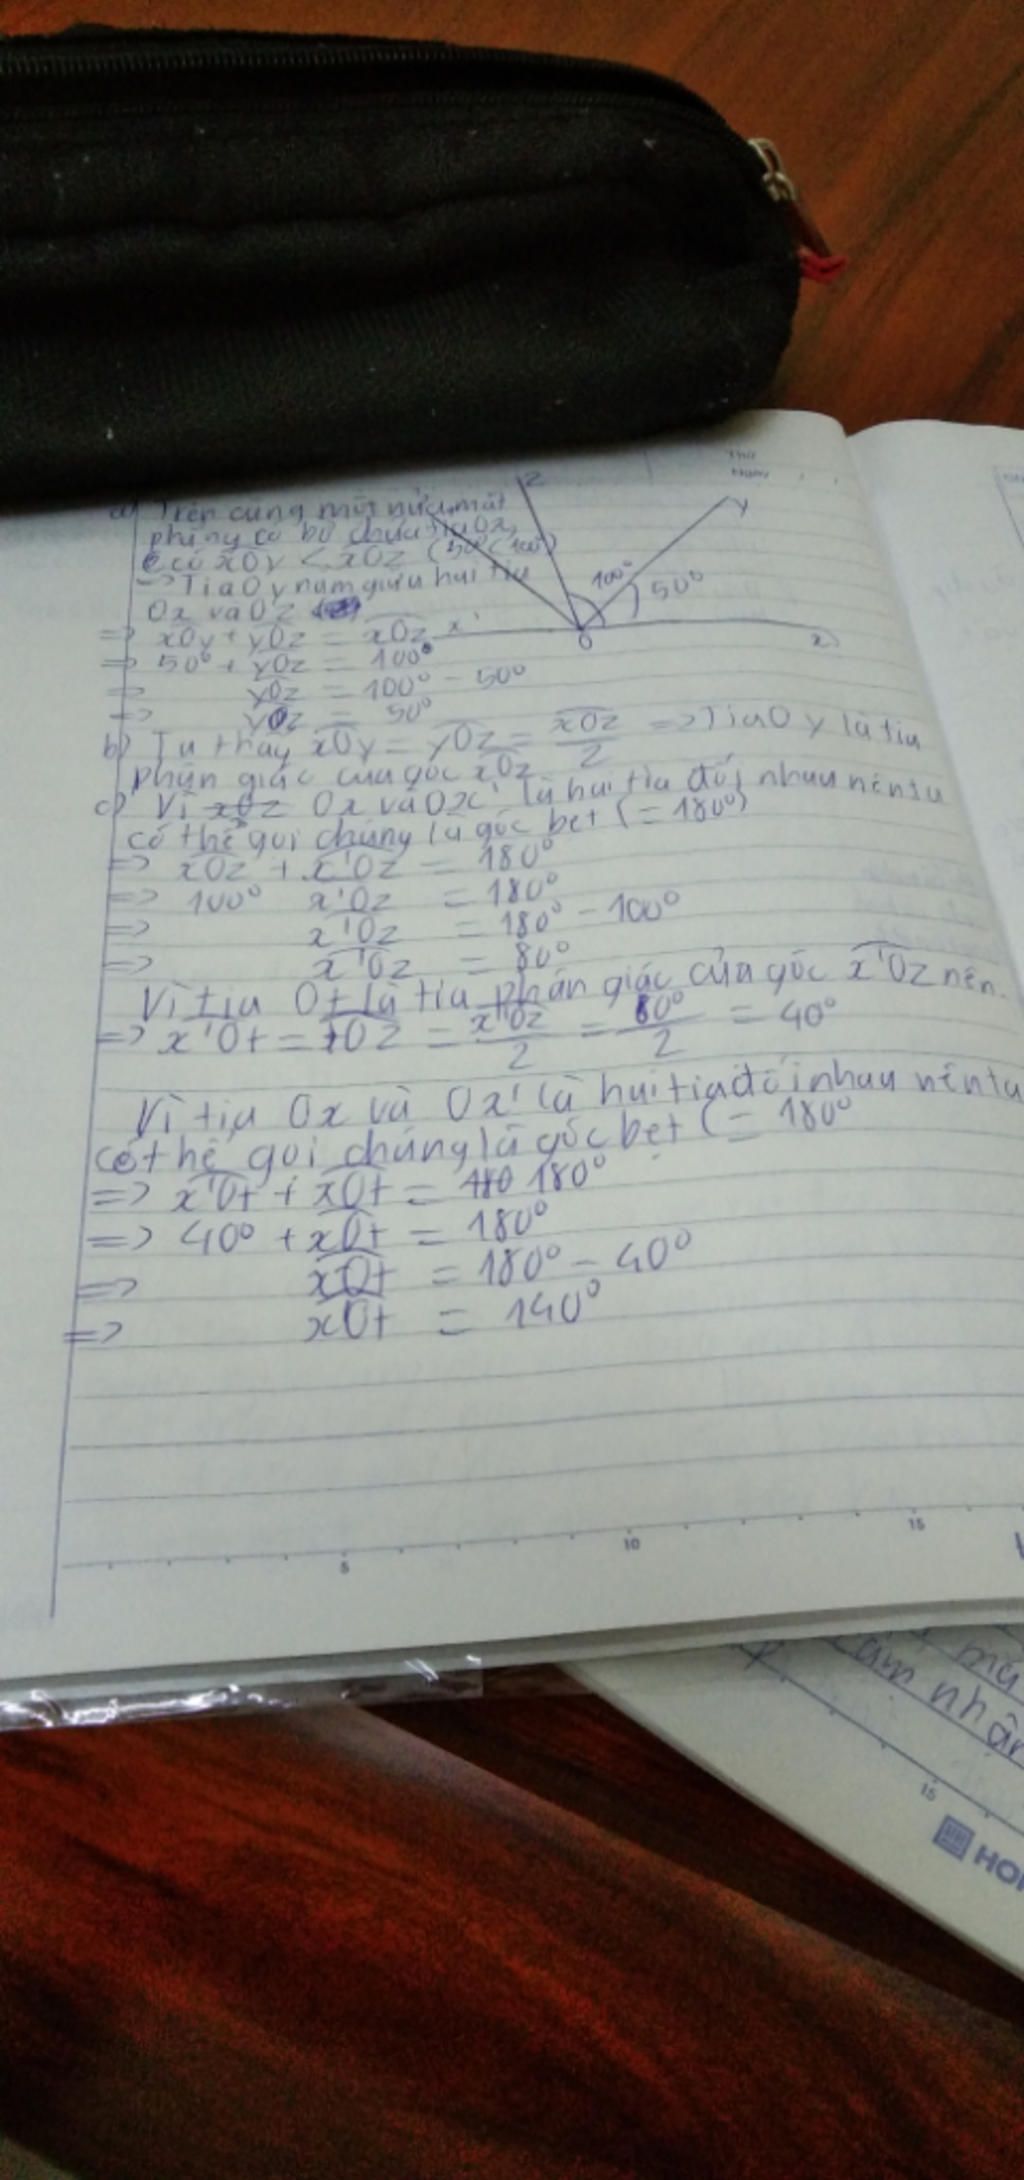 a) Trên cùng một nửa mặt
phẳng có bờ chứa tia Ox,
có xOy < xOz (50° < 100°)
=> Tia Oy nằm giữa hai tia
Ox và Oz
=> xOy + yOz = xOz
=> 50° + yOz = 100°
=> yOz = 100° - 50°
=> yOz = 50°
z
y
100°
50°
x'
O
x
b) Ta thấy xOy = yOz = xOz/2 => Tia Oy là tia
phân giác của góc xOz
c) Vì Ox và Ox' là hai tia đối nhau nên ta
có thể gọi chúng là góc bẹt (= 180°)
=> xOz + x'Oz = 180°
=> 100° x'Oz = 180°
=> x'Oz = 180° - 100°
=> x'Oz = 80°
Vì tia Ot là tia phân giác của góc x'Oz nên
=> x'Ot = tOz = x'Oz/2 = 80°/2 = 40°
Vì tia Ox và Ox' là hai tia đối nhau nên ta
có thể gọi chúng là góc bẹt (= 180°
=> x'Ot + xOt = 180°
=> 40° + xOt = 180°
=> xOt = 180° - 40°
=> xOt = 140°
5 10 15
cảm nhận
15